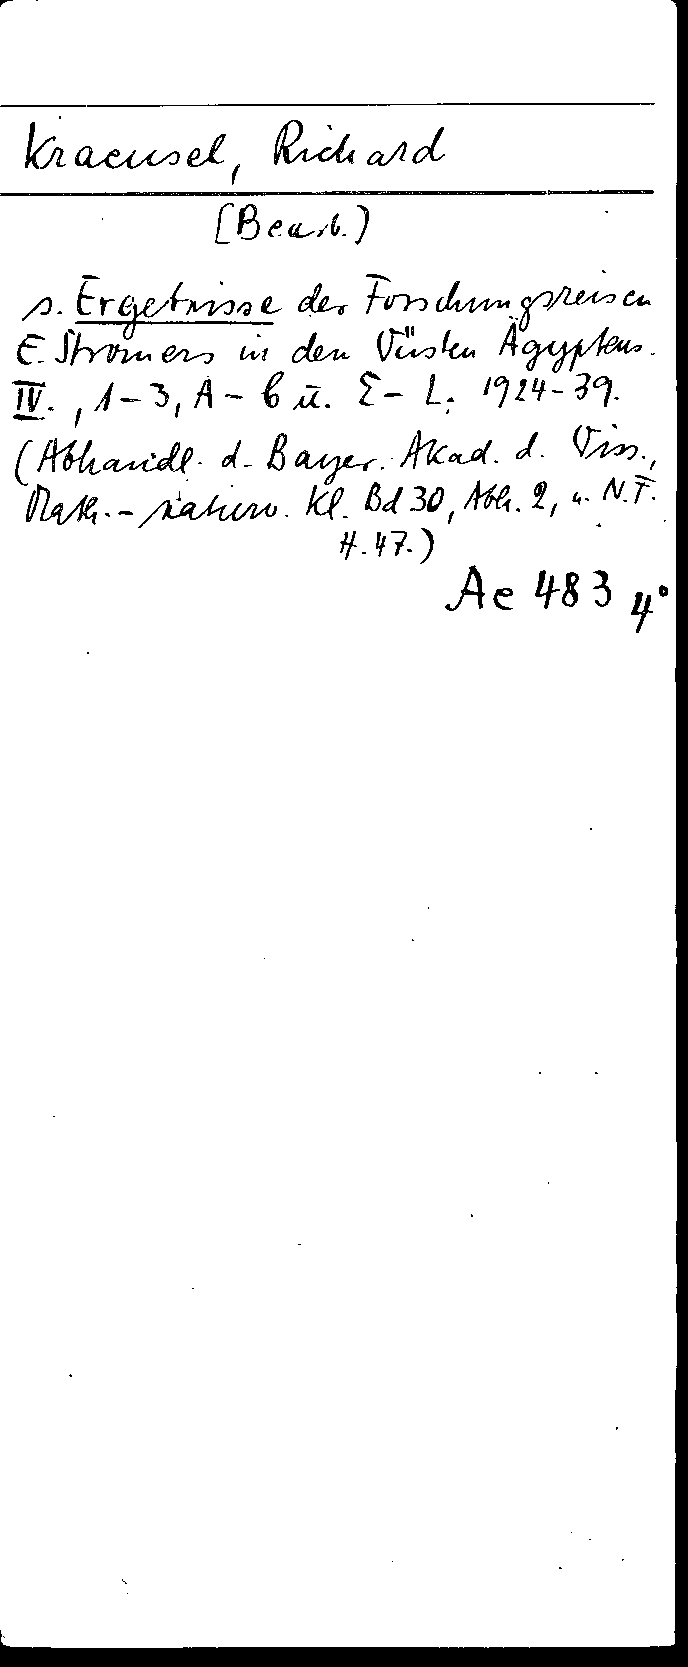 Kraeusel, Richard
[Bearb.)
s. Ergebnisse der Forschungsreisen
E. Stromers in den Wüsten Ägyptens.
IV., 1-3, A-C u. E-L. 1924-39.
(Abhandl. d. Bayer. Akad. d. Wiss.,
Math.-naturw. Kl. Bd 30, Abh. 2, u. N.F.
H. 47.)
Ae 483 4°